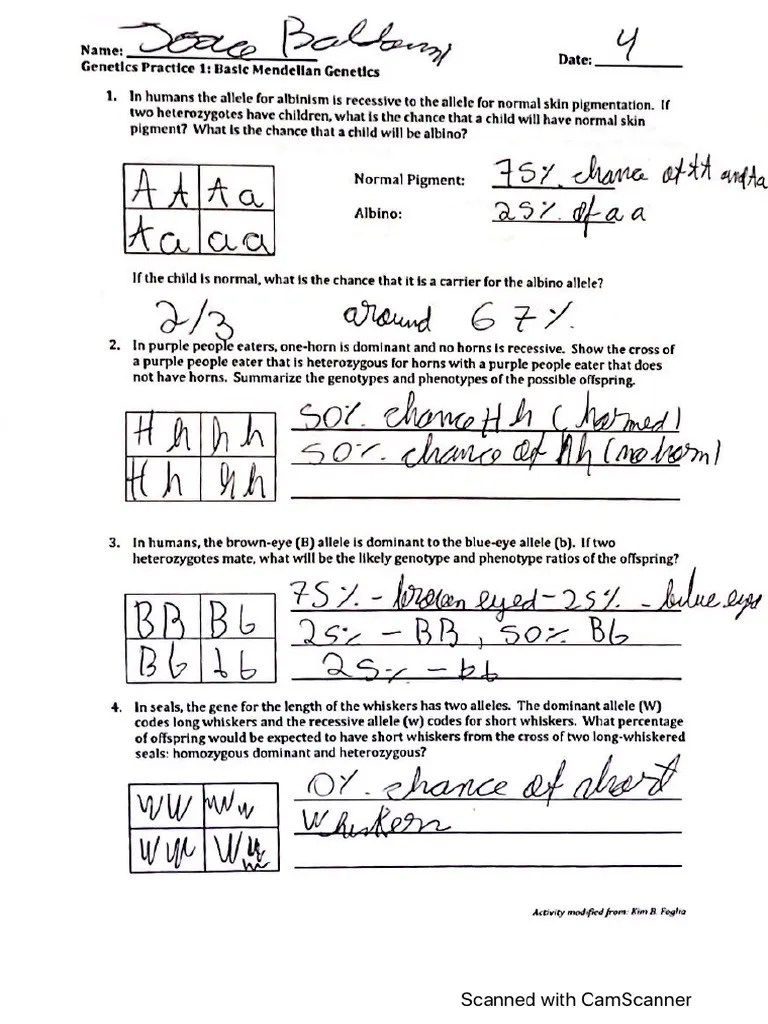 Name:
Date: 4
Genetics Practice 1: Basic Mendelian Genetics
1. In humans the allele for albinism is recessive to the allele for normal skin pigmentation. If
two heterozygotes have children, what is the chance that a child will have normal skin
pigment? What is the chance that a child will be albino?
AA Aa
Aa aa
Normal Pigment: 75% chance of AA and Aa
Albino: 25% of aa
If the child is normal, what is the chance that it is a carrier for the albino allele?
2/3 around 67%.
2. In purple people eaters, one-horn is dominant and no horns is recessive. Show the cross of
a purple people eater that is heterozygous for horns with a purple people eater that does
not have horns. Summarize the genotypes and phenotypes of the possible offspring.
Hh hh
Hh hh
50% chance Hh (horned)
50% chance of hh (no horn)
3. In humans, the brown-eye (B) allele is dominant to the blue-eye allele (b). If two
heterozygotes mate, what will be the likely genotype and phenotype ratios of the offspring?
BB Bb
Bb bb
75% - brown eyed - 25% - blue eyed
25% - BB, 50% Bb
25% - bb
4. In seals, the gene for the length of the whiskers has two alleles. The dominant allele (W)
codes long whiskers and the recessive allele (w) codes for short whiskers. What percentage
of offspring would be expected to have short whiskers from the cross of two long-whiskered
seals: homozygous dominant and heterozygous?
WW Ww
0% chance of short
Whiskers
Activity modified from: Kim B. Foglia
Scanned with CamScanner